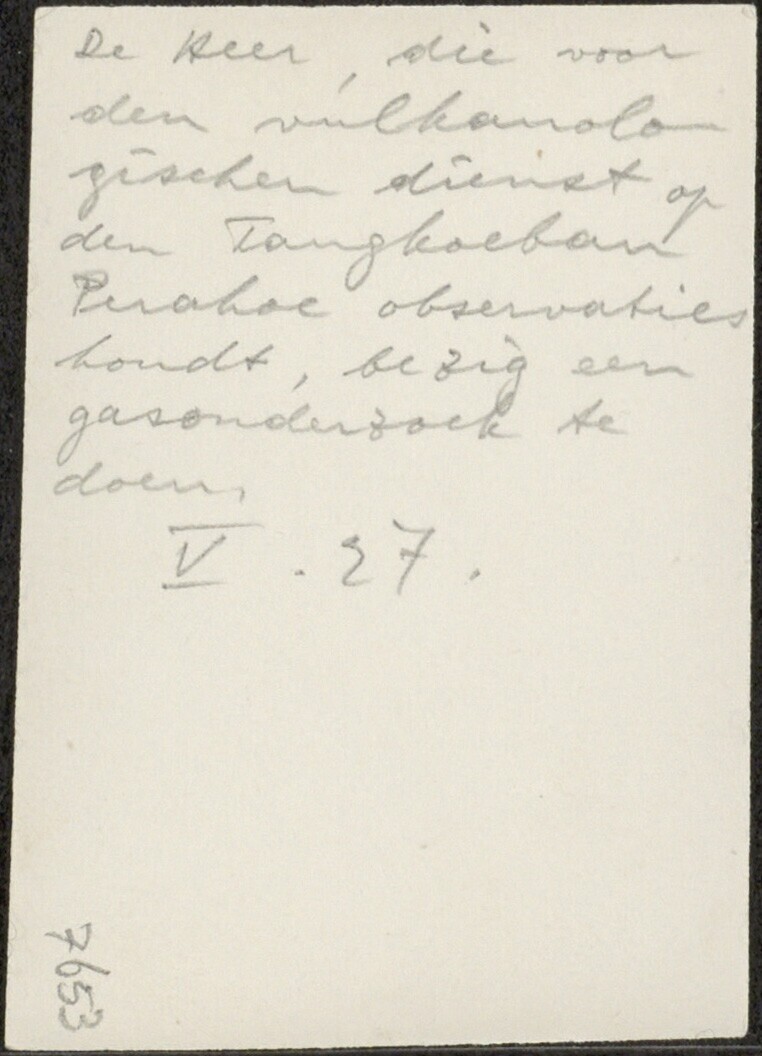 De Heer, die voor
den vulkanolo-
gischen dienst op
den Tangkoeban
Perahoe observaties
houdt, bezig een
gasonderzoek te
doen.
V. 27.
7653